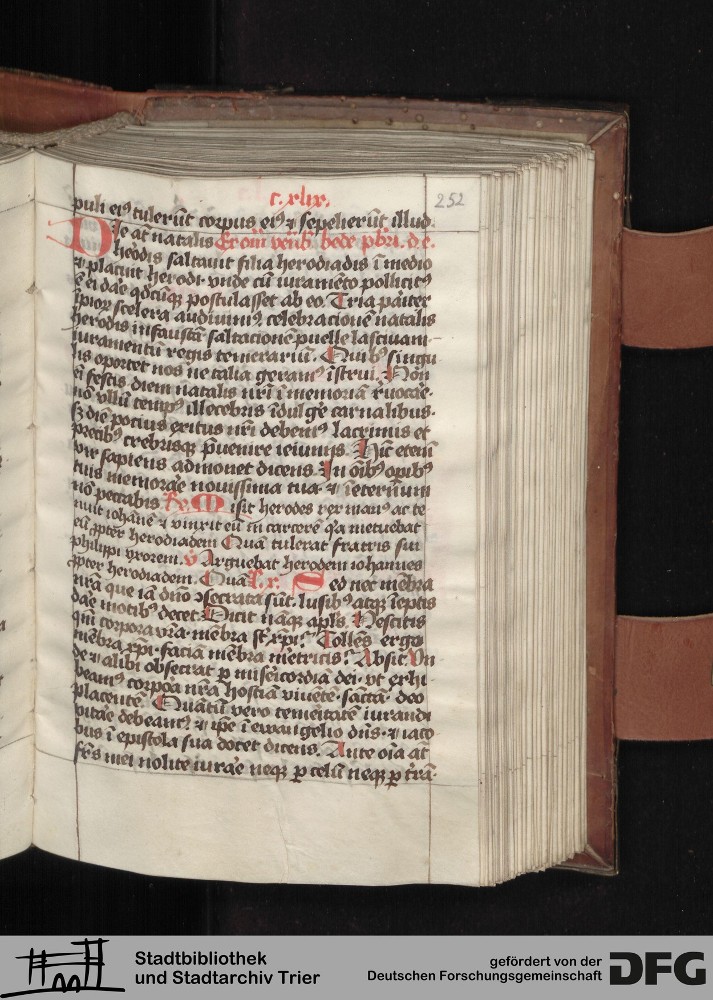 c. xlix.
252
puli ei⁹ tulerūt corpus ei⁹ ⁊ sepelierūt illud.
Die aūt natalis Ex om̄ veñb. bede pbri. d e.
heōdis saltauit filia herodiadis ī medio
⁊ placuit herodi· vnde cū iuramēto pollicit⁹
ē ei dar̄e qdcūq̄ postulasset ab eo. Tria paīter
īpior̄ scelera audiuim⁹. celebracionē natalis
herodis infaustā· saltacionē puelle lasciuam·
iuramentū regis temerariū. Quib⁹ singu
lis oportet nos ne talia geram⁹ īstrui. Nōn
ei festis diem natalis nrī ī memoriā r̄uocar̄e·
nō vllū temp⁹ illecebris īdulḡe carnalibus·
sꝫ diē potius exitus nrī debem⁹ lacrimis et
precib⁹ crebrisqꝫ p̄uenire ieiunijs. Hīc eteni
vir sapiens admonet dicens. In oīb⁹ opib⁹
tuis memorar̄e nouissima tua· ⁊ ī eternum
nō peccabis R̄. Misit herodes rex man⁹ ac te·
nuit iohānē ⁊ vinxit eū in carcerē q̄a metuebat
eū ꝓpter herodiadem Quā tulerat fratris sui
philippi vxorem. v̄ Arguebat herodem iohannes
ꝓpter herodiadem. Quā l. x. Sed nec mēbra
nrā que iā dnō ꝯsecrata sūt· lusib⁹ atqꝫ īeptis
dar̄e motib⁹ decet. Dicit nāqꝫ apl̄s. Nescitis
qm̄ corpora vrā· mēbra st̄ xp̄i? Tollēs ergo
mēbra xp̄i· faciā mēbra mēretricis? Absit. Vn
de ⁊ alibi obsecrat ꝑ misericordiā dei· vt exhi·
beam⁹ corpoā nrā hostiā viuētē· sāctā· deo
placentē. Quātū vero temeitatē iurandi
vitar̄e debeam⁹ ⁊ ip̄e ī ewangelio dn̄s· ⁊ iaco·
bus ī epistola sua docet dicens. Ante oīa aūt
fr̄s mei nolite iurar̄e neqꝫ ꝑ celū neqꝫ ꝑ trā·
Stadtbibliothek
und Stadtarchiv Trier
gefördert von der
Deutschen Forschungsgemeinschaft DFG